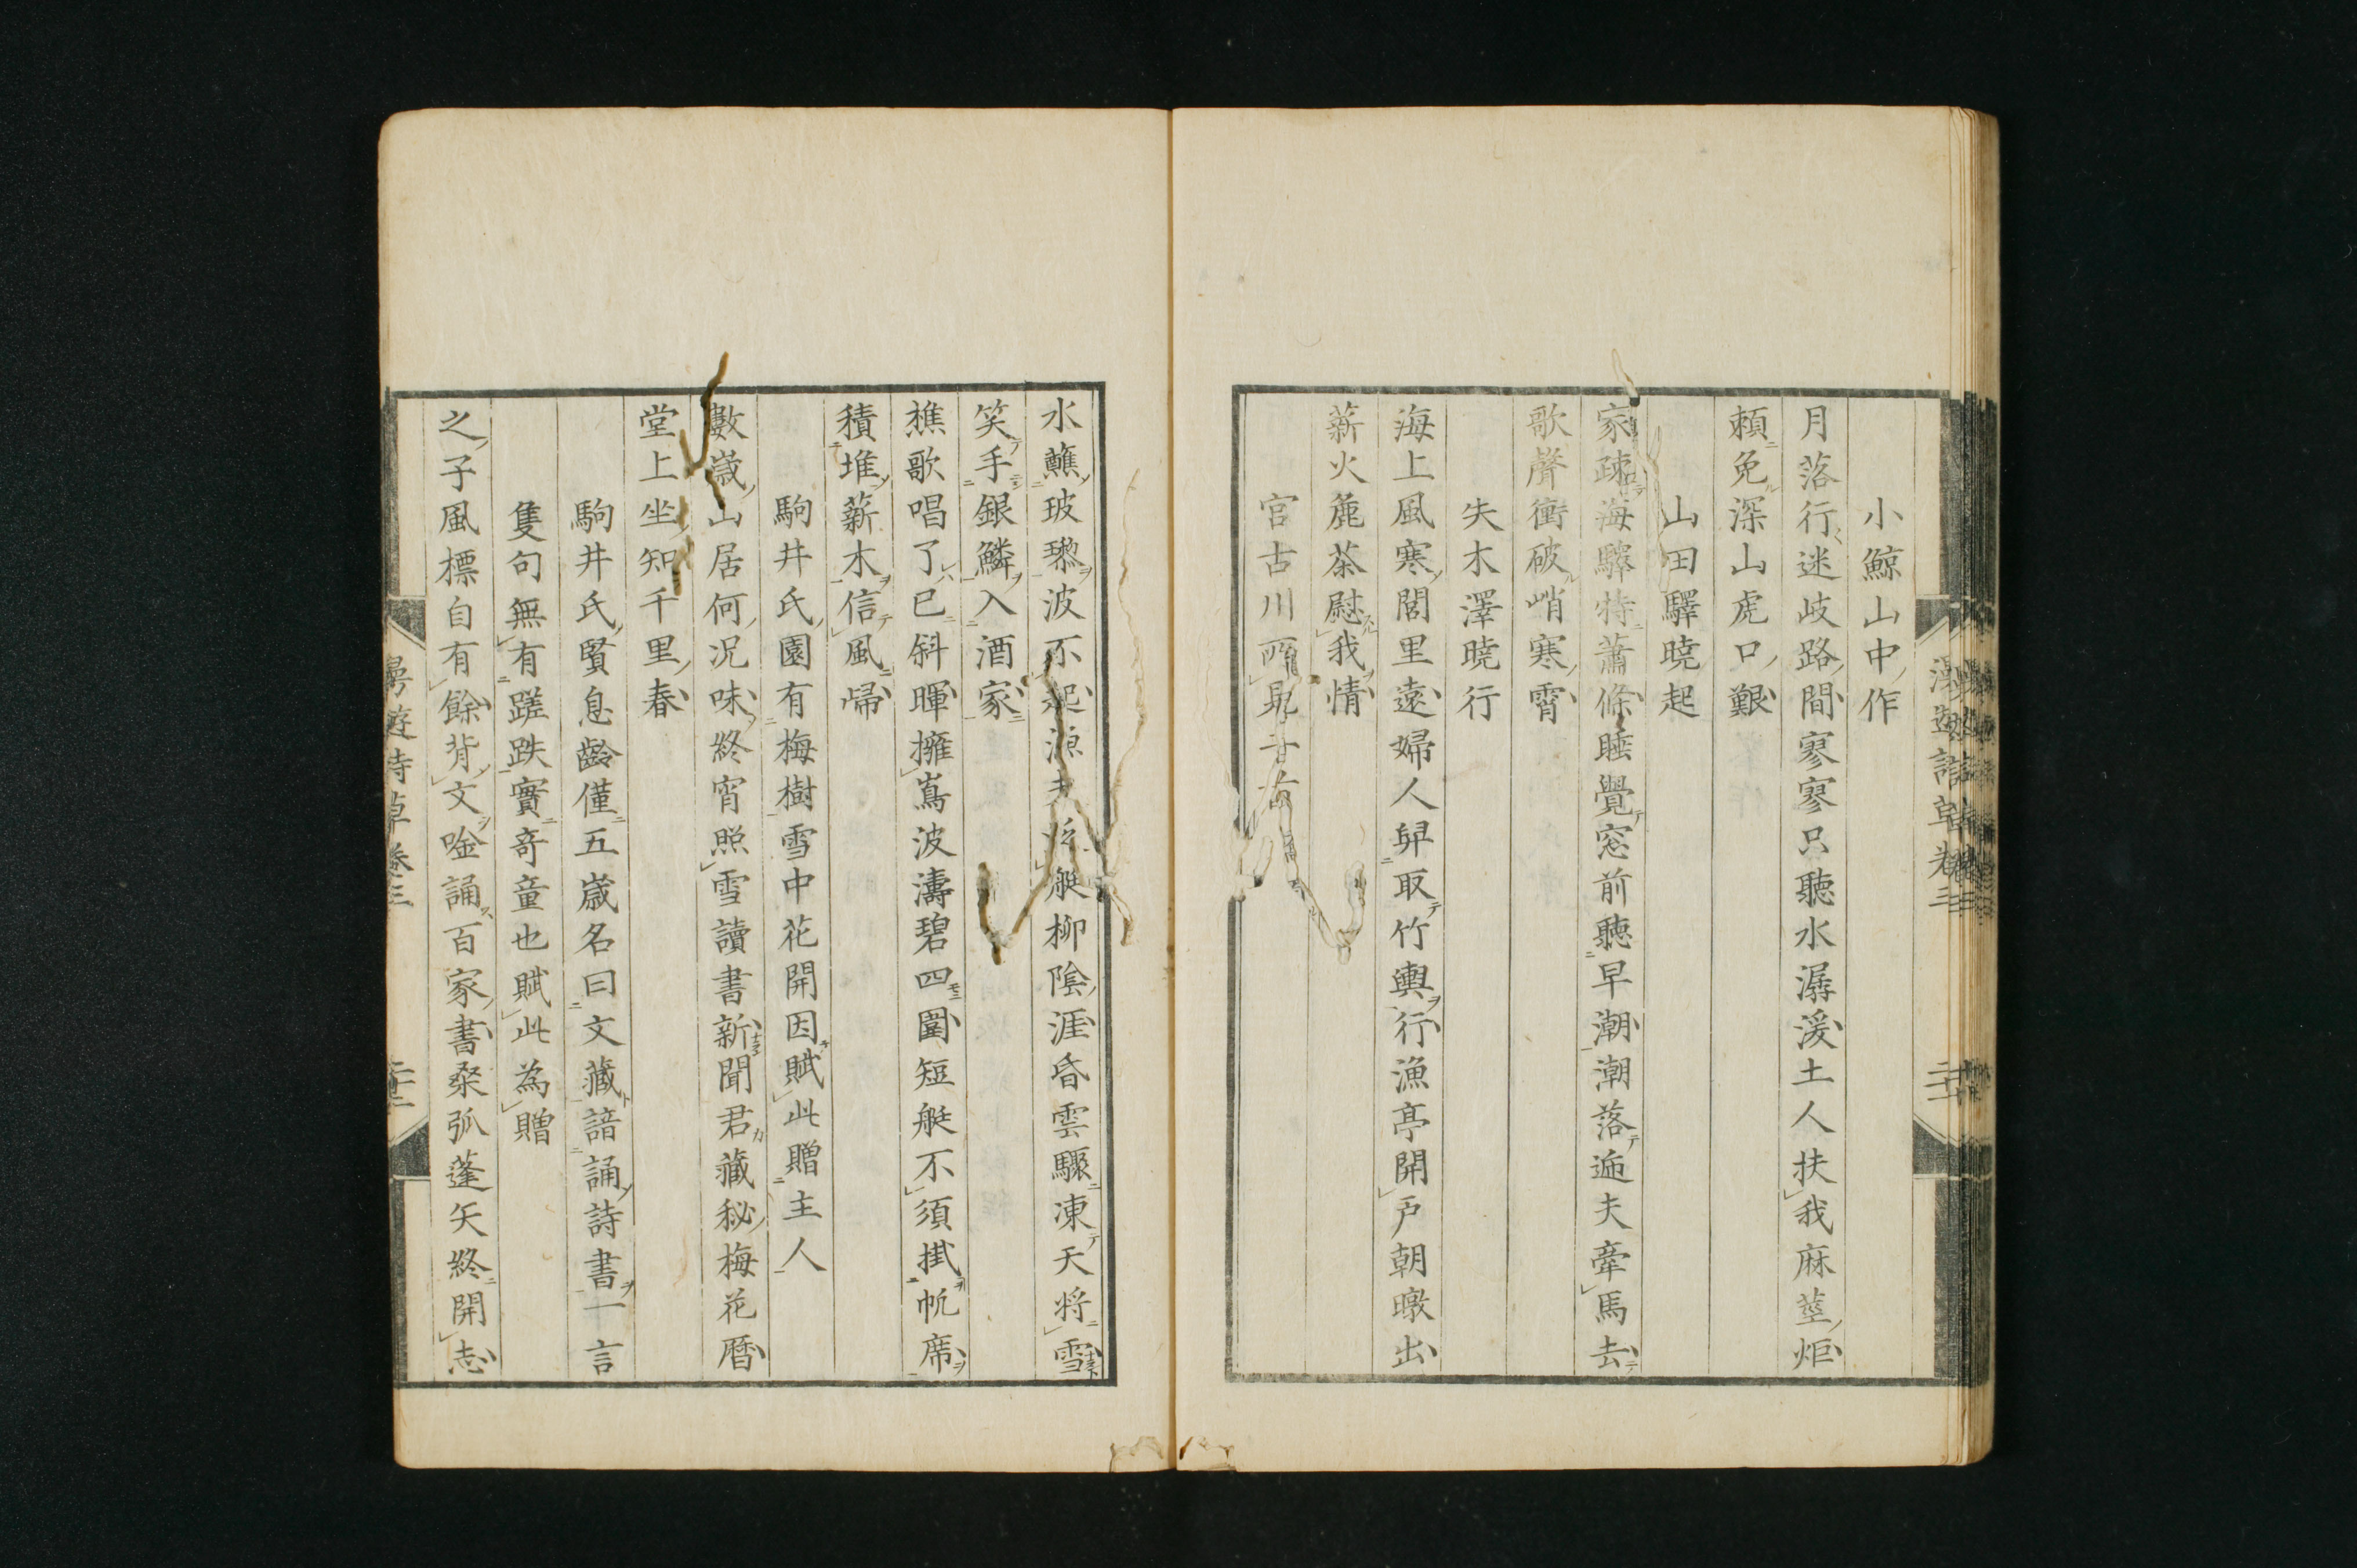 小鯨山中作
月落行迷岐路間寥寥只聽水潺湲土人扶我麻莖炬
頼免深山虎口艱
山田驛曉起
家疎海驛特蕭條睡覺窓前聽早潮潮落逓夫牽馬去
歌聲衝破峭寒霄
失木澤曉行
海上風寒閭里遠婦人舁取竹輿行漁亭開戶朝暾出
薪火麁茶慰我情
宮古川所見
水蘸玻瓈波不起漁夫艇柳陰涯昏雲驟凍天将雪
笑手銀鱗入酒家
樵歌唱了已斜暉擁嶌波濤碧四圍短艇不須掛帆席
積堆薪木信風歸
駒井氏園有梅樹雪中花開因賦此贈主人
數歳山居何況味終宵照雪讀書新聞君藏秘梅花暦
堂上坐知千里春
駒井氏賢息齡僅五歳名曰文藏諳誦詩書一言
隻句無有蹉跌實竒童也賦此為贈
之子風標自有餘背文唫誦百家書桒弧蓬矢終開志
漫遊詩草卷三